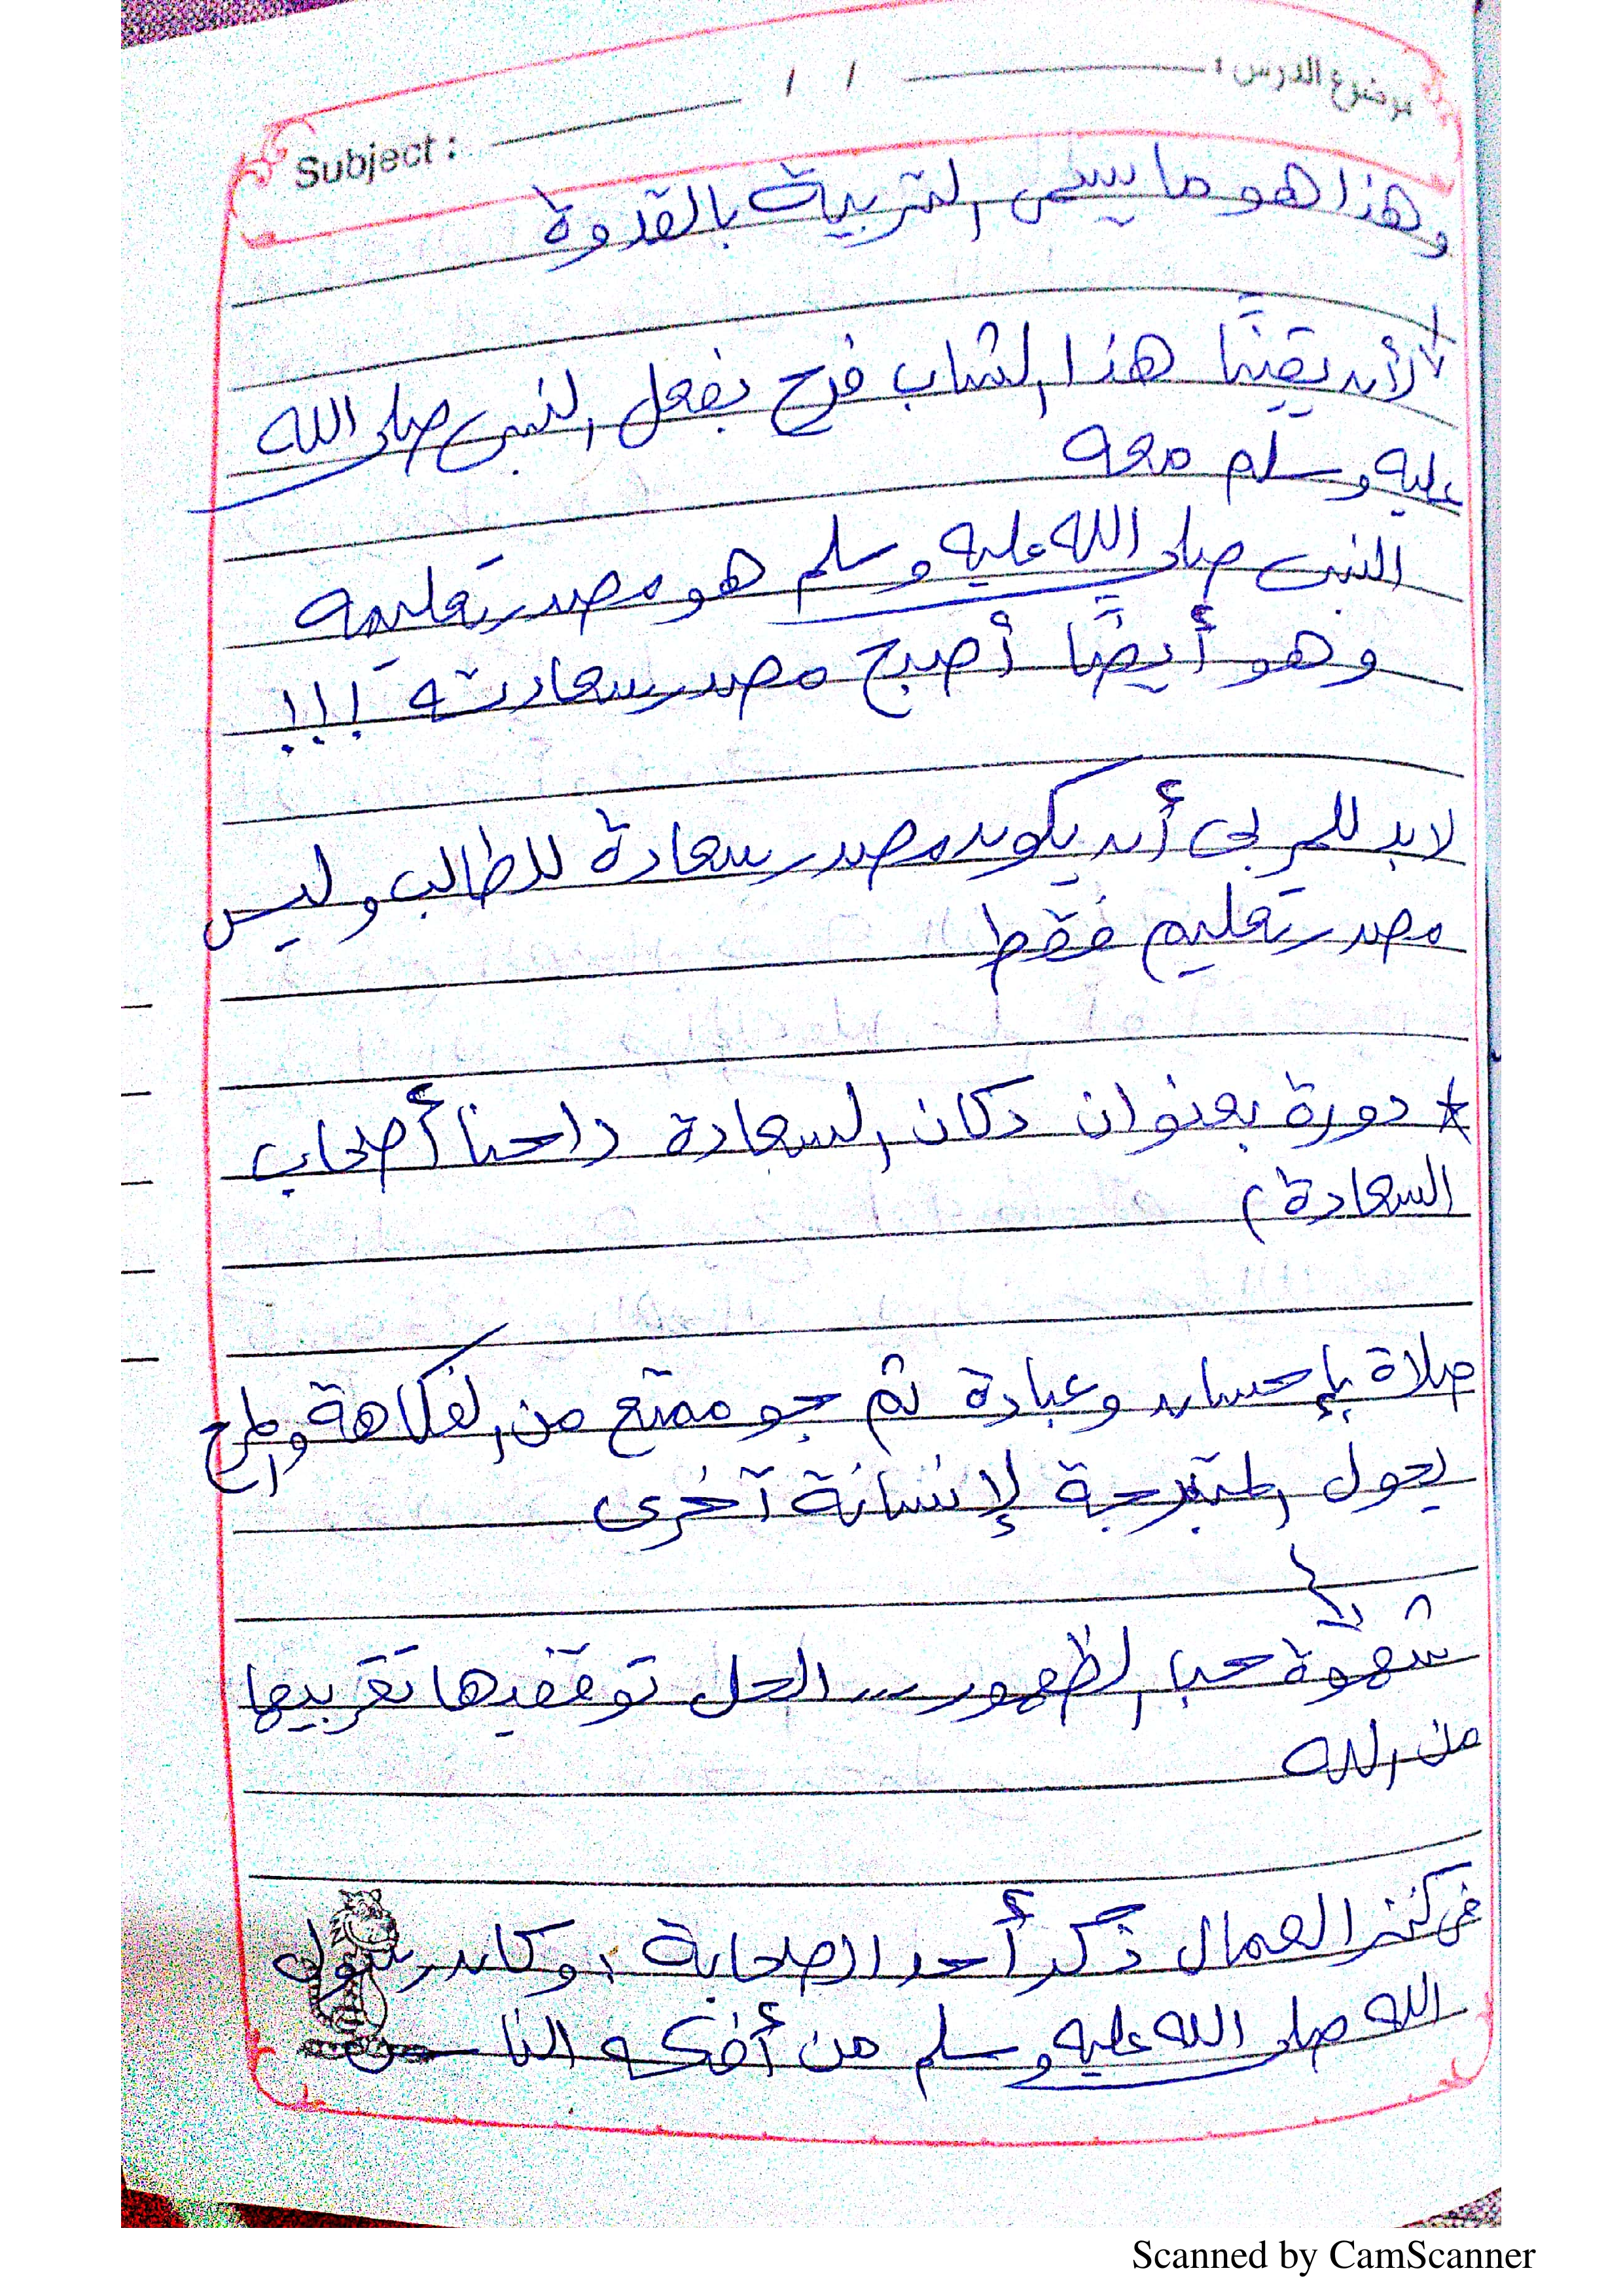 موضوع الدرس : / /
Subject :
وهذا هو ما يسمى التربية بالقدوة
لأن يقينًا هذا الشاب فرح بفعل النبى صلى الله
عليه وسلم معه
النبى صلى الله عليه وسلم هو مصدر تعليمه
وهو أيضًا أصبح مصدر سعادته !!!
لابد للمربى أن يكون مصدر سعادة للطالب وليس
مصدر تعليم فقط
* دورة بعنوان دكان السعادة (احنا أصحاب
السعادة)
صلاة بإحسان وعبادة ثم جو ممتع من الفكاهة والمرح
يحول المتبرجة لإنسانة آخرى
شهوة حب الظهور ... الحل توقفيها تقربيها
من الله
فى كنز العمال ذكر أحد الصحابة : وكان رسول
الله صلى الله عليه وسلم من أفكه الناس
Scanned by CamScanner